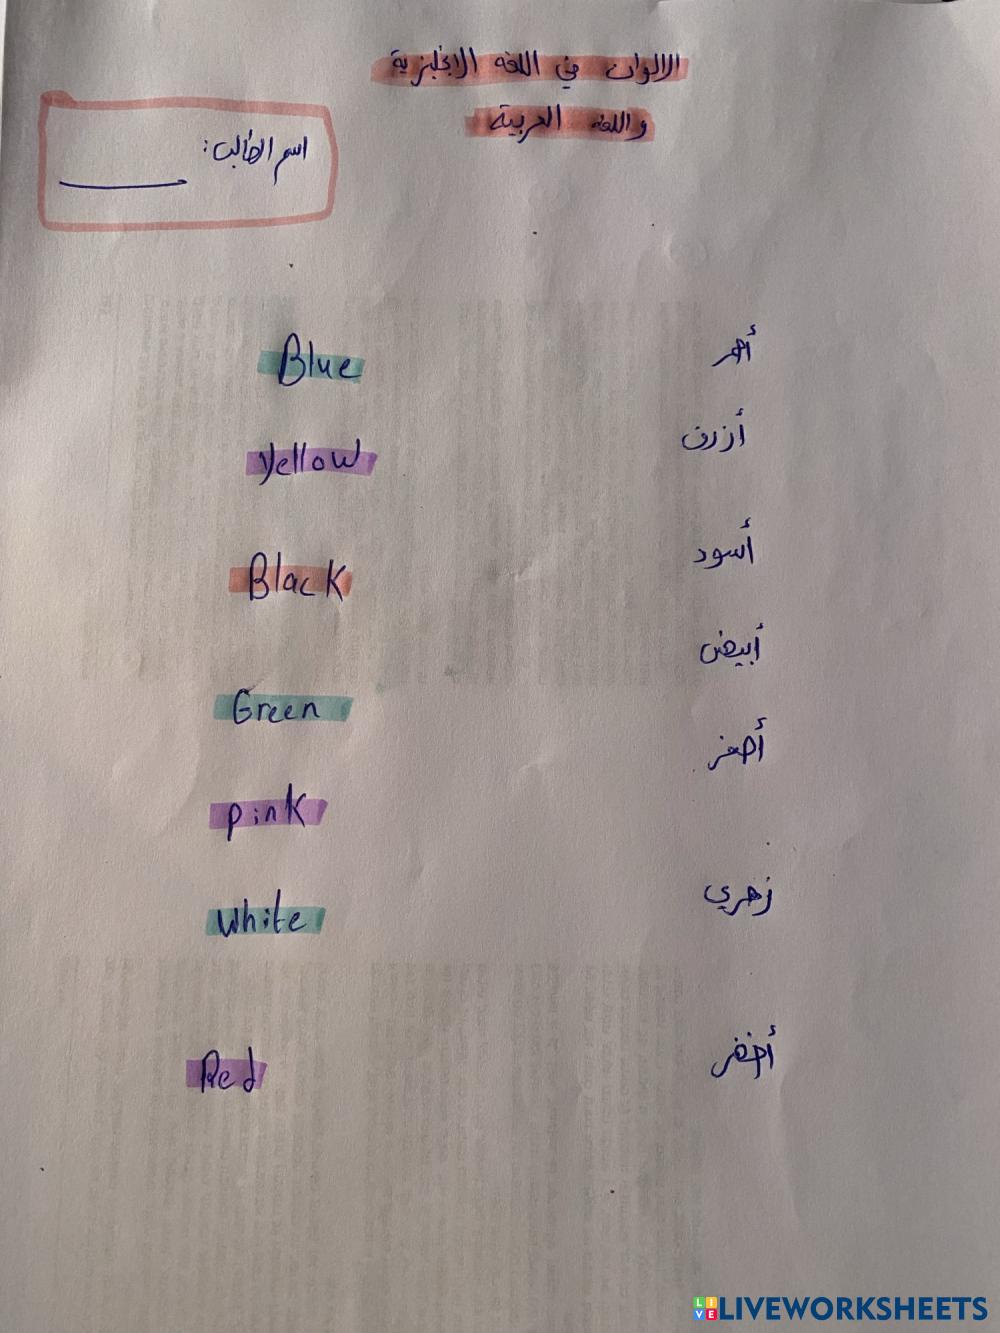 الالوان في اللغة الانجليزية
واللغة العربية
اسم الطالب:
Blue
أحمر
Yellow
أزرق
Black
أسود
أبيض
Green
أصفر
pink
زهري
White
Red
أخضر
LIVEWORKSHEETS